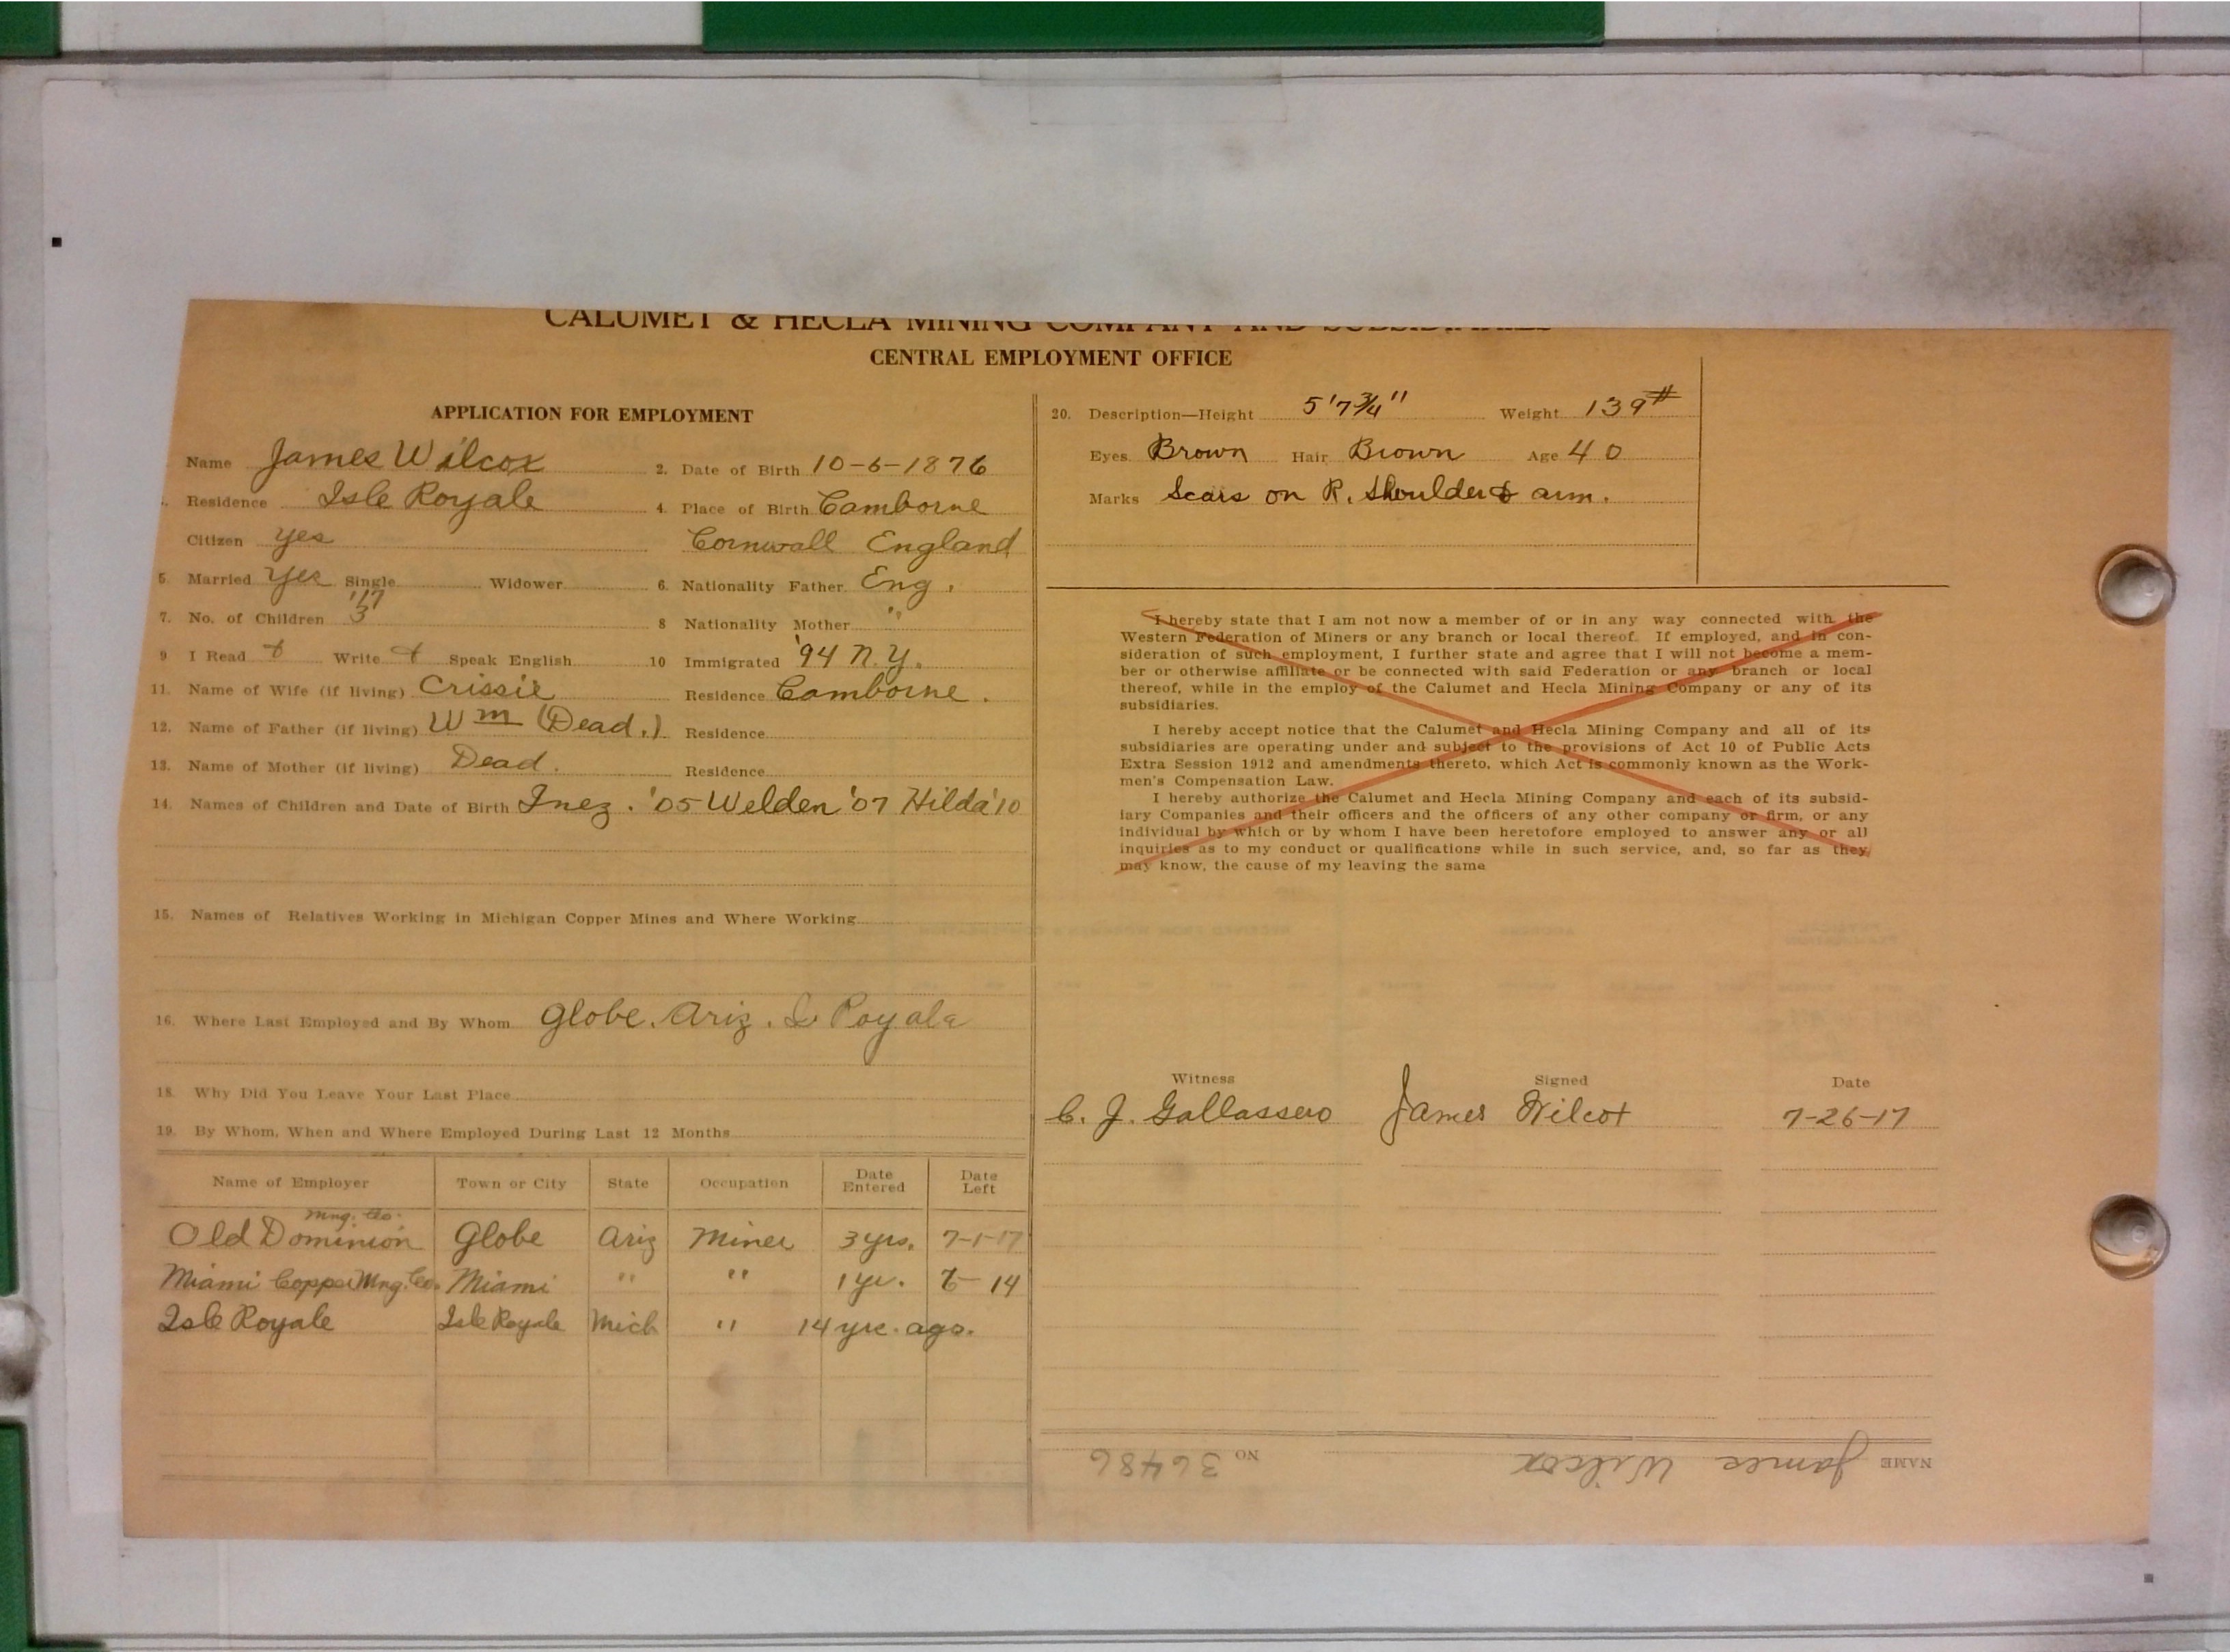 CALUMET & HECLA MINING COMPANY AND SUBSIDIARIES
CENTRAL EMPLOYMENT OFFICE
APPLICATION FOR EMPLOYMENT
Name James Wilcox 2. Date of Birth 10-6-1876
Residence Isle Royale 4. Place of Birth Camborne
Citizen yes Cornwall England
5. Married Yes Single Widower 6. Nationality Father Eng.
'17
7. No. of Children 3 8 Nationality Mother "
9 I Read + Write + Speak English 10 Immigrated '94 N.Y.
11. Name of Wife (if living) Crissie Residence Camborne.
12. Name of Father (if living) Wm (Dead.) Residence
13. Name of Mother (if living) Dead. Residence
14. Names of Children and Date of Birth Inez. '05 Welden '07 Hilda '10
15. Names of Relatives Working in Michigan Copper Mines and Where Working
16. Where Last Employed and By Whom Globe. Ariz. I Royale
18. Why Did You Leave Your Last Place
19. By Whom, When and Where Employed During Last 12 Months
Name of Employer Town or City State Occupation Date Entered Date Left
Mng. Co.
Old Dominion Globe Ariz Miner 3 yrs. 7-1-17
Miami Copper Mng. Co. Miami " " 1 yr. 6-14
Isle Royale Isle Royale Mich " 14 yrs. ago.
20. Description—Height 5'7 3/4" Weight 139#
Eyes Brown Hair Brown Age 40
Marks Scars on R. Shoulder & arm.
I hereby state that I am not now a member of or in any way connected with the
Western Federation of Miners or any branch or local thereof. If employed, and in con-
sideration of such employment, I further state and agree that I will not become a mem-
ber or otherwise affiliate or be connected with said Federation or any branch or local
thereof, while in the employ of the Calumet and Hecla Mining Company or any of its
subsidiaries.
I hereby accept notice that the Calumet and Hecla Mining Company and all of its
subsidiaries are operating under and subject to the provisions of Act 10 of Public Acts
Extra Session 1912 and amendments thereto, which Act is commonly known as the Work-
men's Compensation Law.
I hereby authorize the Calumet and Hecla Mining Company and each of its subsid-
iary Companies and their officers and the officers of any other company or firm, or any
individual by which or by whom I have been heretofore employed to answer any or all
inquiries as to my conduct or qualifications while in such service, and, so far as they
may know, the cause of my leaving the same
Witness Signed Date
C. J. Gallassero James Wilcox 7-26-17
NAME James Wilcox NO 36486